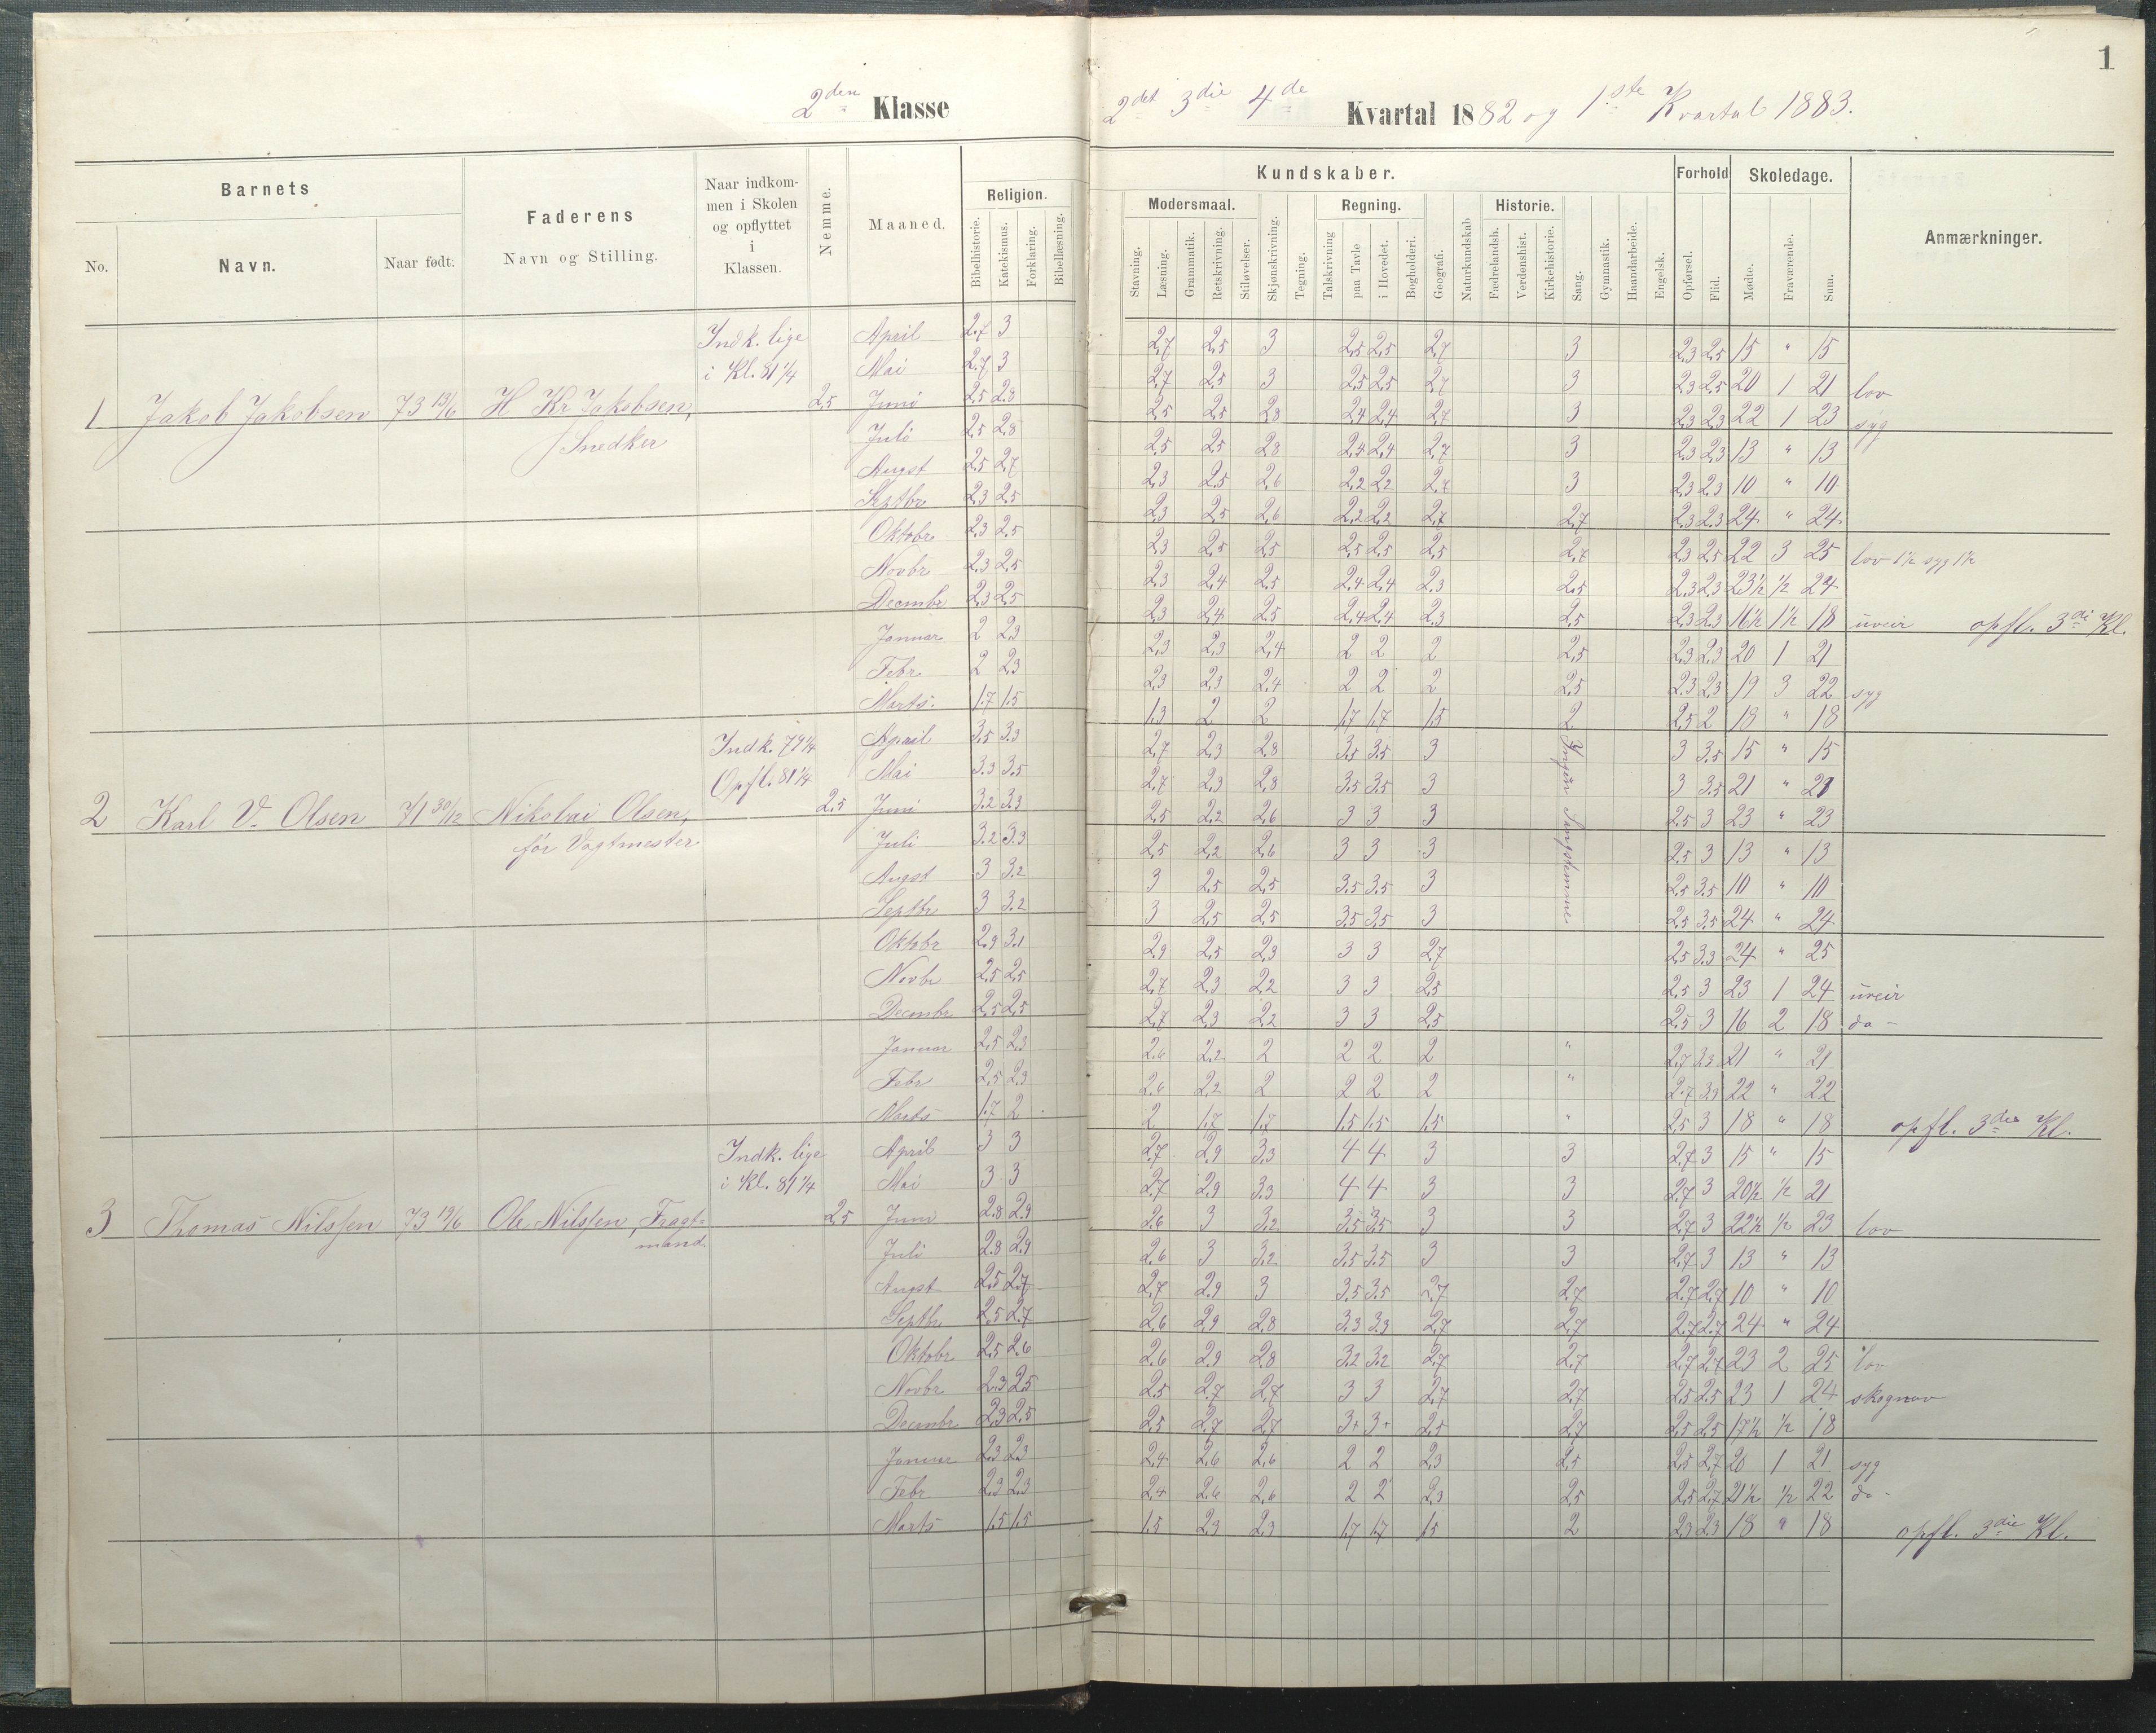 1
2den Klasse 2det 3die 4de Kvartal 1882 og 1ste Kvartal 1883.
Barnets
No. Navn. Naar født.
Faderens
Navn og Stilling.
Naar indkom-
men i Skolen
og opflyttet
i
Klassen.
Nemme.
Maaned.
Kundskaber.
Religion.
Bibelhistorie. Katekismus. Forklaring. Bibellæsning.
Modersmaal.
Stavning. Læsning. Grammatik. Retskrivning. Stiløvelser. Skjønskrivning. Tegning.
Regning.
Talskrivning paa Tavle i Hovedet. Bogholderi. Geografi. Naturkundskab
Historie.
Fædrelandsh. Verdenshist. Kirkehistorie. Sang. Gymnastik. Haandarbeide. Engelsk.
Forhold
Opførsel. Flid.
Skoledage.
Mødte. Fraværende. Sum.
Anmærkninger.
1 Jakob Jakobsen 73 19/6 H Kr Jakobsen, Snedker
Indk. lige
i Kl. 81 1/4
2,5
April 2.7 3 2,7 2,5 3 2,5 2,5 2,7 3 2,3 2,5 15 " 15
Mai 2.7 3 2,7 2,5 3 2,5 2,5 2,7 3 2,3 2,5 20 1 21 lov
Juni 2,5 2.8 2,5 2,5 2,8 2,4 2,4 2,7 3 2,3 2,3 22 1 23 syg
Juli 2,5 2,8 2,5 2,5 2,8 2,4 2,4 2,7 3 2,3 2,3 13 " 13
Augst 2,5 2,7 2,3 2,5 2,6 2,2 2,2 2,7 3 2,3 2,3 10 " 10
Septbr 2,3 2,5 2,3 2,5 2,6 2,2 2,2 2,7 2,7 2,3 2,3 24 " 24
Oktobr 2,3 2,5 2,3 2,5 2,5 2,5 2,5 2,5 2,7 2,3 2,5 22 3 25 lov 1 1/2 syg 1 1/2
Novbr 2,3 2,5 2,3 2,4 2,5 2,4 2,4 2,3 2,5 2,3 2,3 23 1/2 1/2 24
Decembr 2,3 2,5 2,3 2,4 2,5 2,4 2,4 2,3 2,5 2,3 2,3 16 1/2 1 1/2 18 uveir opfl. 3di Kl.
Januar 2 2,3 2,3 2,3 2,4 2 2 2 2,5 2,3 2,3 20 1 21
Febr 2 2,3 2,3 2,3 2,4 2 2 2 2,5 2,3 2,3 19 3 22 syg
Marts. 1.7 1.5 1,3 2 2 1,7 1,7 1,5 2 2,5 2 18 " 18
2 Karl V. Olsen 71 30/12 Nikolai Olsen, før Vagtmester
Indk. 79 1/4
Opfl. 81 1/4
2.5
Ingen Sangstemme
April 3,5 3.3 2,7 2,3 2,8 3,5 3,5 3 3 3,5 15 " 15
Mai 3.3 3,5 2,7 2,3 2,8 3,5 3,5 3 3 3,5 21 " 21
Juni 3.2 3.3 2,5 2,2 2,6 3 3 3 2,5 3 23 " 23
Juli 3.2 3.3 2,5 2,2 2,6 3 3 3 2,5 3 13 " 13
Augst 3 3.2 3 2,5 2,5 3,5 3,5 3 2,5 3,5 10 " 10
Septbr 3 3.2 3 2,5 2,5 3,5 3,5 3 2,5 3,5 24 " 24
Oktobr 2.9 3.1 2,9 2,5 2,3 3 3 2,7 2,5 3,3 24 " 25
Novbr 2,5 2,5 2,7 2,3 2,2 3 3 2,5 2,5 3 23 1 24 uveir
Decembr 2,5 2,5 2,7 2,3 2,2 3 3 2,5 2,5 3 16 2 18 do -
Januar 2,5 2.3 2.6 2.2 2 2 2 2 " 2,7 3.3 21 " 21
Febr 2,5 2.3 2,6 2,2 2 2 2 2 " 2,7 3.3 22 " 22
Marts 1.7 2 2 1,7 1,7 1,5 1,5 1,5 " 2,5 3 18 " 18 opfl. 3die Kl.
3 Thomas Nilssen 73 19/6 Ole Nilssen, Fragt-
mand
Indk. lige
i Kl. 81 1/4
2,5
April 3 3 2,7 2,9 3.3 4 4 3 3 2,7 3 15 " 15
Mai 3 3 2,7 2,9 3.3 4 4 3 3 2,7 3 20 1/2 1/2 21
Juni 2.8 2.9 2,6 3 3.2 3,5 3,5 3 3 2,7 3 22 1/2 1/2 23 lov
Juli 2.8 2.9 2,6 3 3.2 3,5 3,5 3 3 2,7 3 13 " 13
Augst 2,5 2,7 2,7 2,9 3 3,5 3,5 2,7 2,7 2,7 2,7 10 " 10
Septbr 2,5 2,7 2,6 2,9 2,8 3.3 3.3 2,7 2,7 2,7 2,7 24 " 24
Oktobr 2,5 2.6 2,6 2,9 2,8 3.2 3.2 2,7 2,7 2,7 2,7 23 2 25 lov
Novbr 2.3 2.5 2,5 2,7 2,7 3 3 2,7 2,7 2,5 2,5 23 1 24
Decembr 2,3 2,5 2,5 2,7 2,7 3+ 3+ 2,5 2,7 2,5 2,5 17 1/2 1/2 18
Januar 2,3 2,3 2,4 2,6 2,6 2 2 2,3 2,5 2,5 2,7 20 1 21 syg
Febr 2,3 2,3 2,4 2,6 2,6 2 2 2,3 2,5 2,5 2,7 21 1/2 1/2 22 do -
Marts 1,5 1,5 1,5 2,3 2,3 1,7 1,7 1,5 2 2,3 2,3 18 " 18 opfl. 3die Kl.